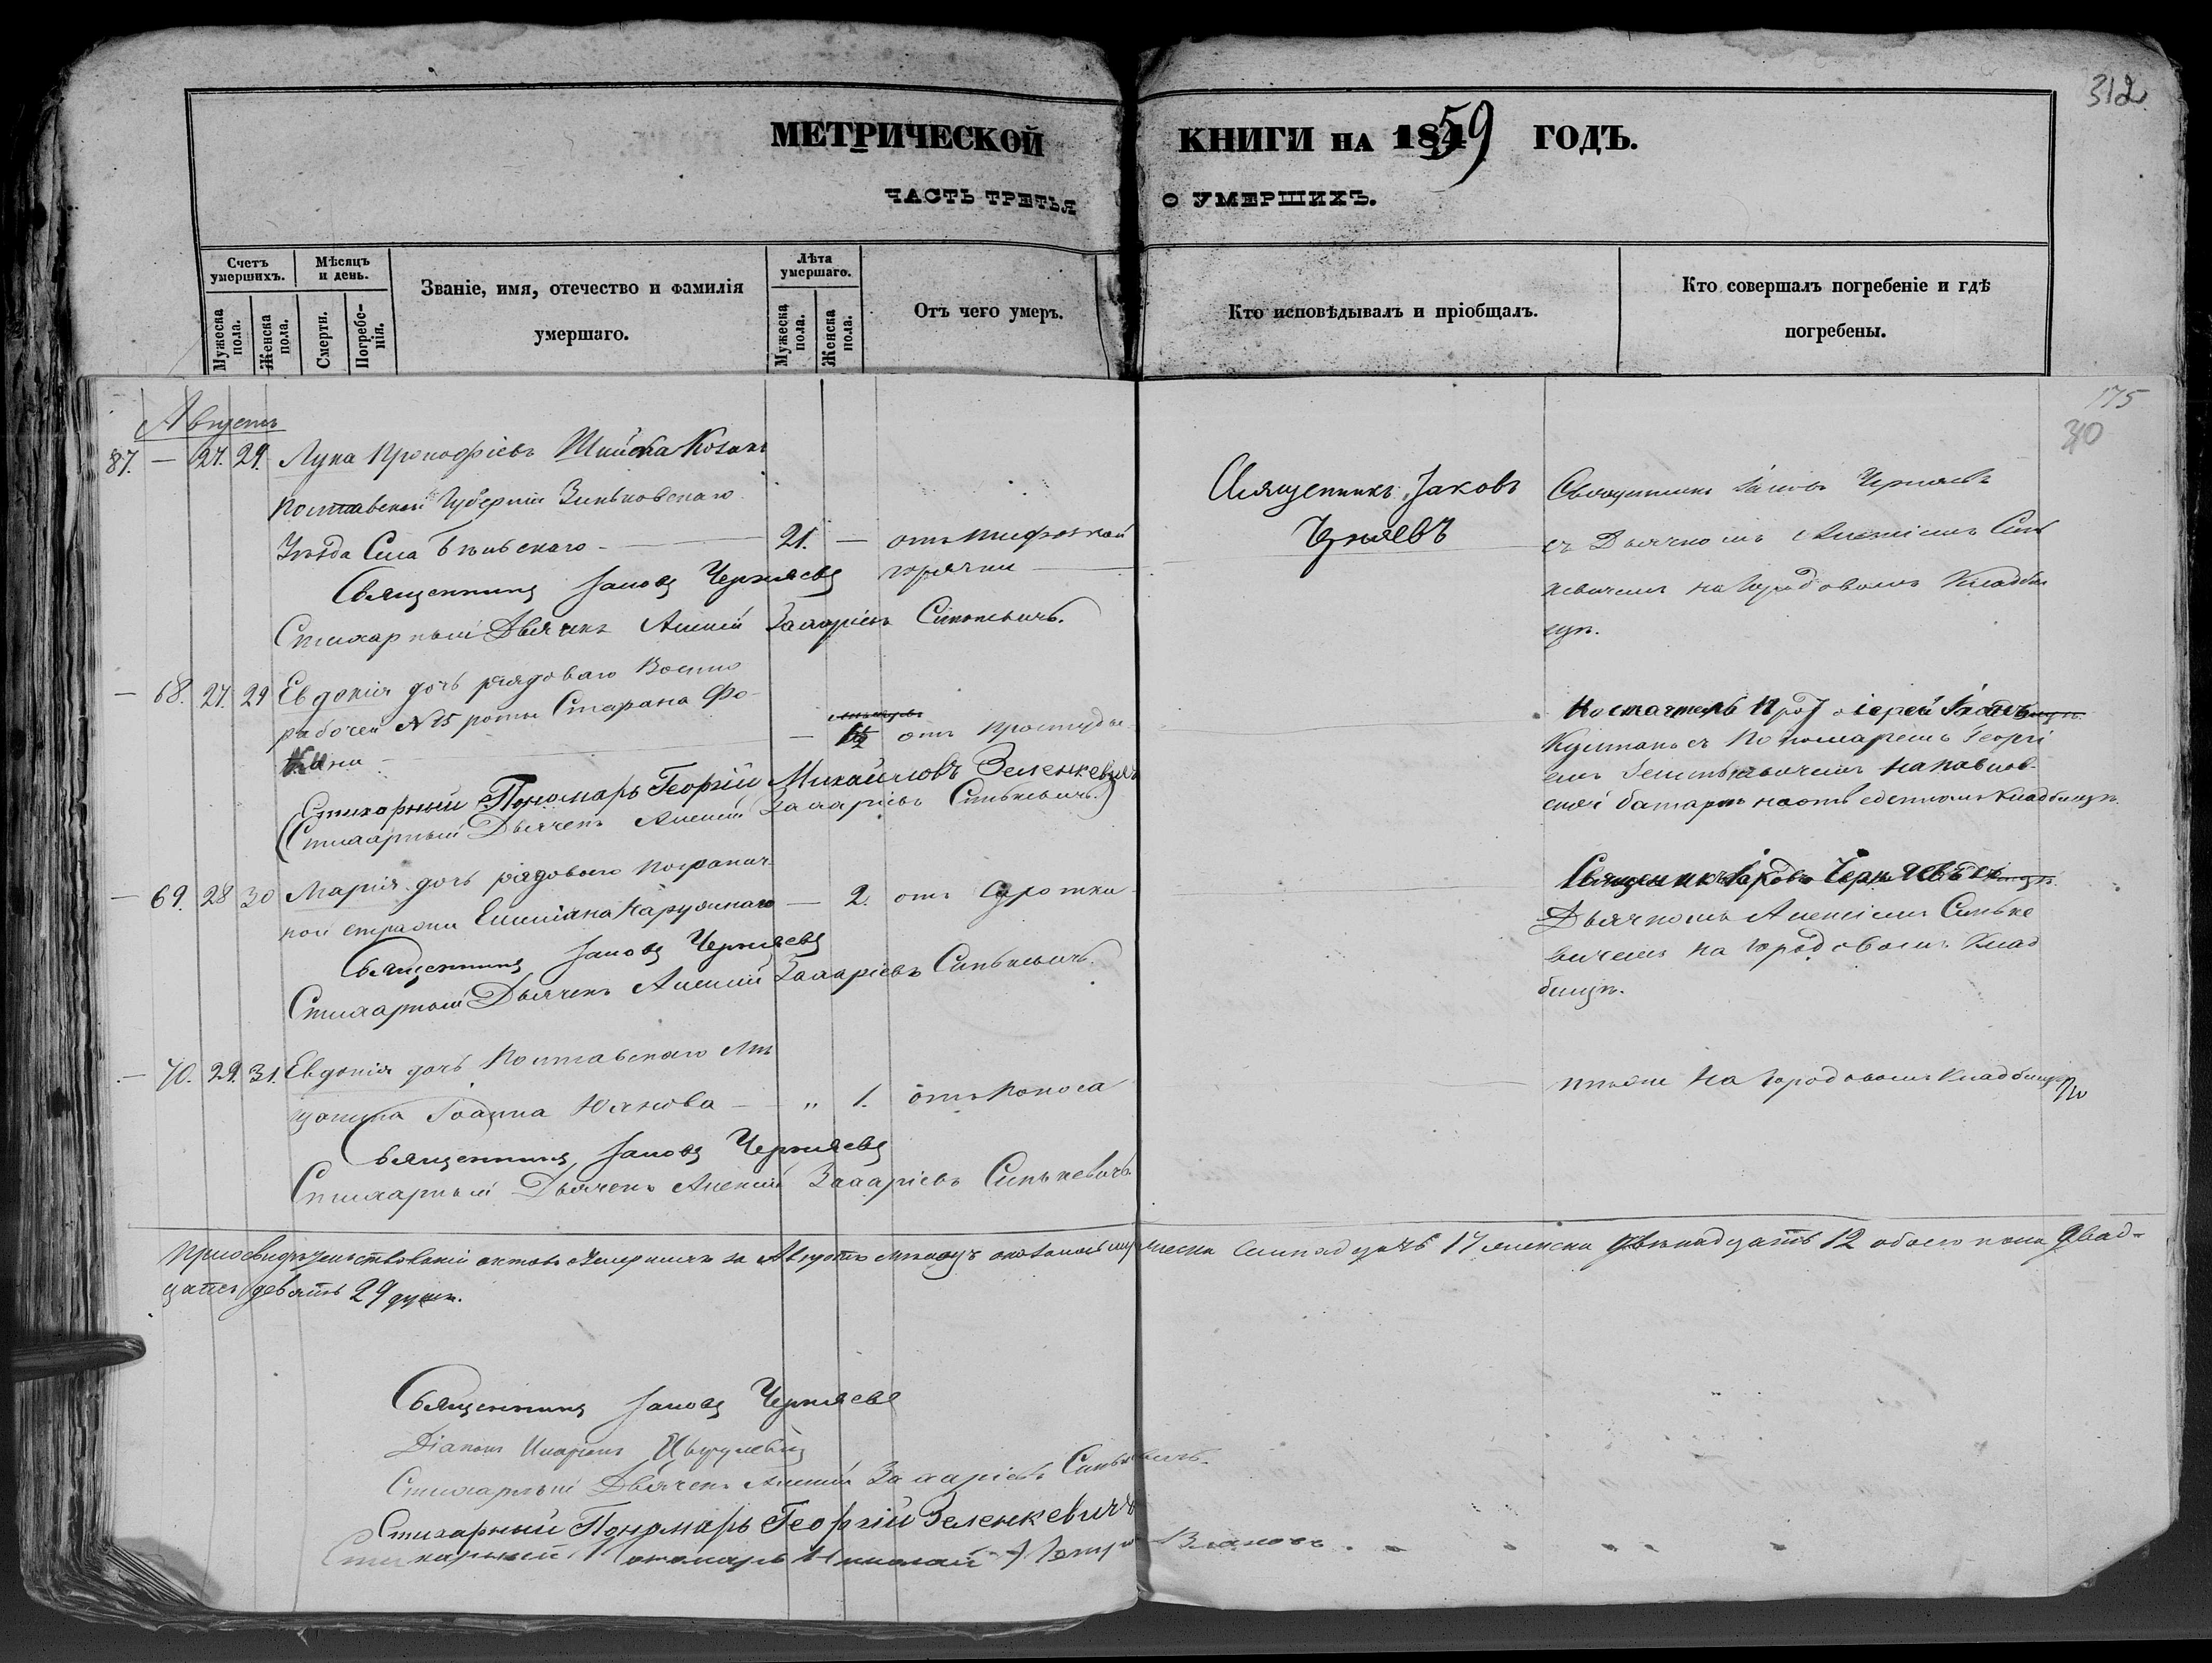 312
МЕТРИЧЕСКОЙ КНИГИ НА 1859 ГОДЪ.
ЧАСТЬ ТРЕТЬЯ О УМЕРШИХЪ.
Счетъ умершихъ.
Мужеска пола.
Женска пола.
Мѣсяцъ и день.
Смерти.
Погребенія.
Званіе, имя, отечество и фамилія умершаго.
Лѣта умершаго.
Мужеска пола.
Женска пола.
Отъ чего умеръ.
Кто исповѣдывалъ и пріобщалъ.
Кто совершалъ погребеніе и гдѣ погребены.
175
30
Августъ
87. — 27. 29. Лука Прокофіевъ Козакъ
Полтавской Губерніи Зиньковскаго
Уѣзда Села — 21. — отъ тифозной
горячки
Священникъ Іаковъ Черняевъ
Стихарный Дьячекъ Алексій Захаріевъ Синькевичъ.
Священникъ Іаковъ
Черняевъ
Священникъ Іаковъ Черняевъ
съ Дьячкомъ Алексіемъ Синь
кевичемъ на Городовомъ Кладби
щѣ.
— 68. 27. 29 Евдокія дочь рядоваго Военно
рабочей № 15 роты Стефана Фо-
— отъ простуды
Стихарный Пономарь Георгій Михайловъ Зеленкевичъ
Стихарный Дьячекъ Алексій Захаріевъ Синькевичъ.
Настоятель Протоіерей
съ Пономаремъ Георгі
емъ Зеленкевичемъ на Павлов-
ской батареѣ кладбищѣ.
— 69. 28 30 Марія дочь рядоваго погранич
ной стражи Емиліана — 2. отъ
Священникъ Іаковъ Черняевъ
Стихарный Дьячекъ Алексій Захаріевъ Синькевичъ.
Священникъ Іаковъ Черняевъ съ
Дьячкомъ Алексіемъ Синьке
вичемъ на Городовомъ Клад
бищѣ.
— 70. 29. 31. Евдокія дочь Полтавскаго Мѣ
щанина Іоанна — „ 1. отъ поноса
Священникъ Іаковъ Черняевъ
Стихарный Дьячекъ Алексій Захаріевъ Синькевичъ
на Городовомъ Кладбищѣ
При освидѣтельствованіи актовъ умершихъ за Августъ мѣсяцъ оказалось мужеска семнадцать 17 женска двѣнадцать 12 обоего пола двад-
цать девять 29 душъ.
Священникъ Іаковъ Черняевъ
Діаконъ
Стихарный Дьячекъ Алексій Захаріевъ Синькевичъ.
Стихарный Пономарь Георгій Зеленкевичъ
Стихарный Пономарь Николай